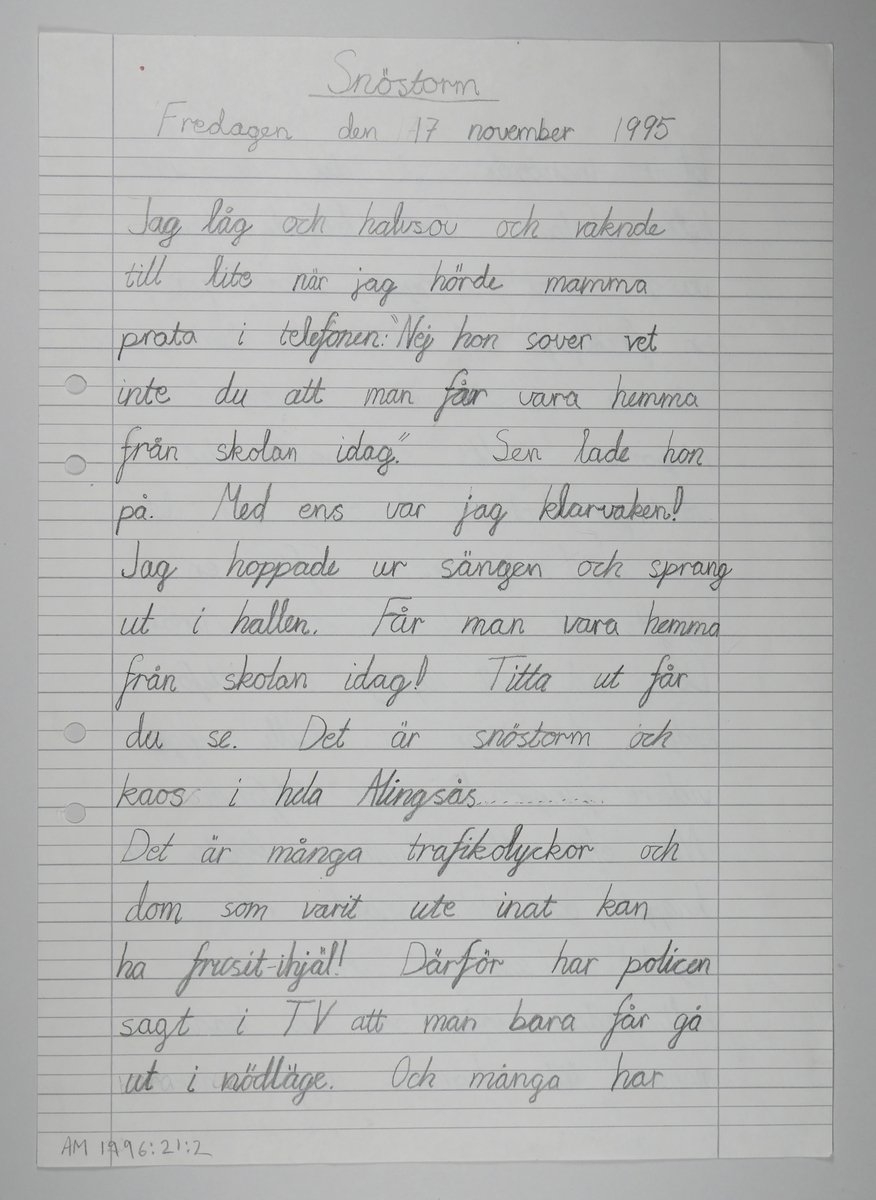 Snöstorm
Fredagen den 17 november 1995
Jag låg och halvsov och vaknde
till lite när jag hörde mamma
prata i telefonen: "Nej hon sover vet
inte du att man får vara hemma
från skolan idag." Sen lade hon
på. Med ens var jag klarvaken!
Jag hoppade ur sängen och sprang
ut i hallen. Får man vara hemma
från skolan idag! Titta ut får
du se. Det är snöstorm och
kaos i hela Alingsås............
Det är många trafikolyckor och
dom som varit ute inat kan
ha frusit-ihjäl! Därför har policen
sagt i TV att man bara får gå
ut i nödläge. Och många har
AM 1996:21:2